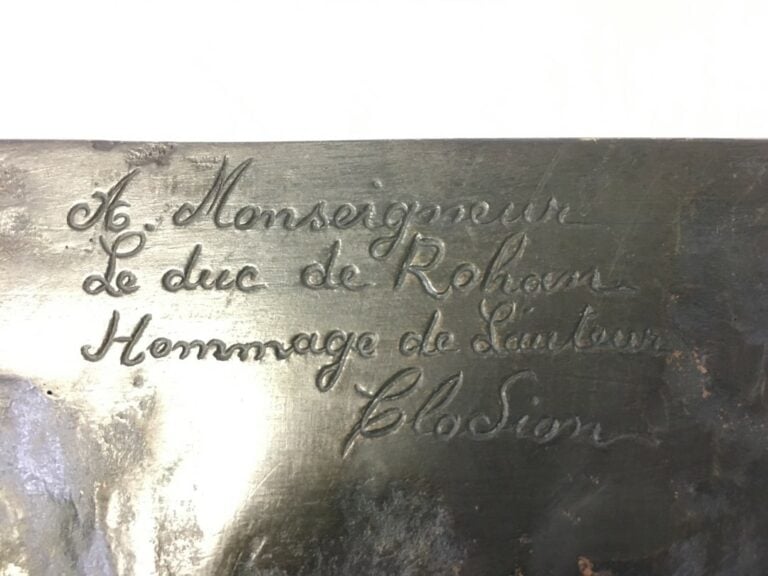 A. Monseigneur
Le duc de Rohan
Hommage de L'auteur
Clodion